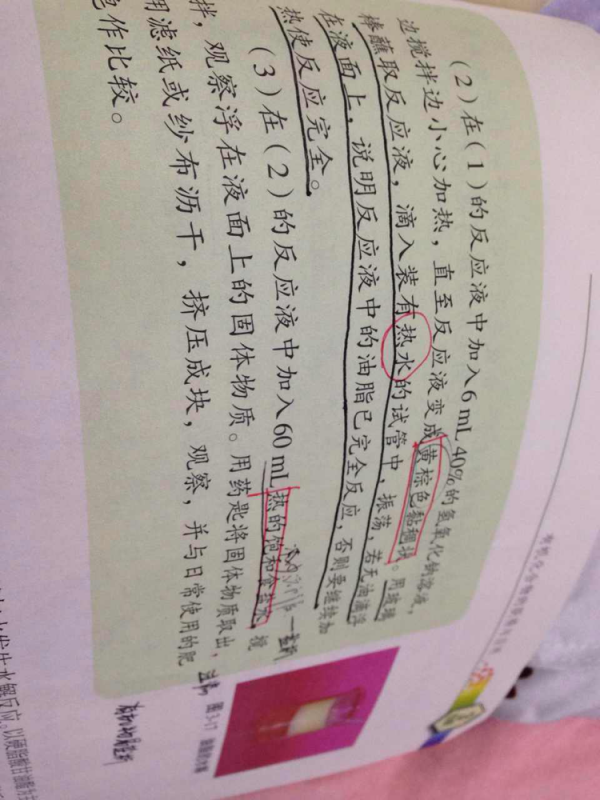 有机化合物的获得与应用
(2)在(1)的反应液中加入6 mL 40%的氢氧化钠溶液,
边搅拌边小心加热,直至反应液变成黄棕色黏稠状。用玻璃
棒蘸取反应液,滴入装有热水的试管中,振荡,若无油滴浮
在液面上,说明反应液中的油脂已完全反应,否则要继续加
热使反应完全。
(3)在(2)的反应液中加入60 mL热的饱和食盐水,搅
拌,观察浮在液面上的固体物质。用药匙将固体物质取出,
用滤纸或纱布沥干,挤压成块,观察,并与日常使用的肥
皂作比较。
图3-17
发生水解反应。以硬脂酸甘油酯为